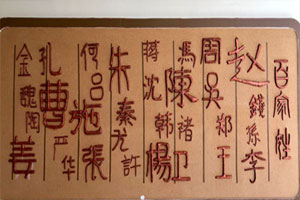 百家姓
赵錢孫李
周吴郑王
馮陳褚卫
蒋沈韩楊
朱秦尤許
何吕施張
孔曹严华
金魏陶姜